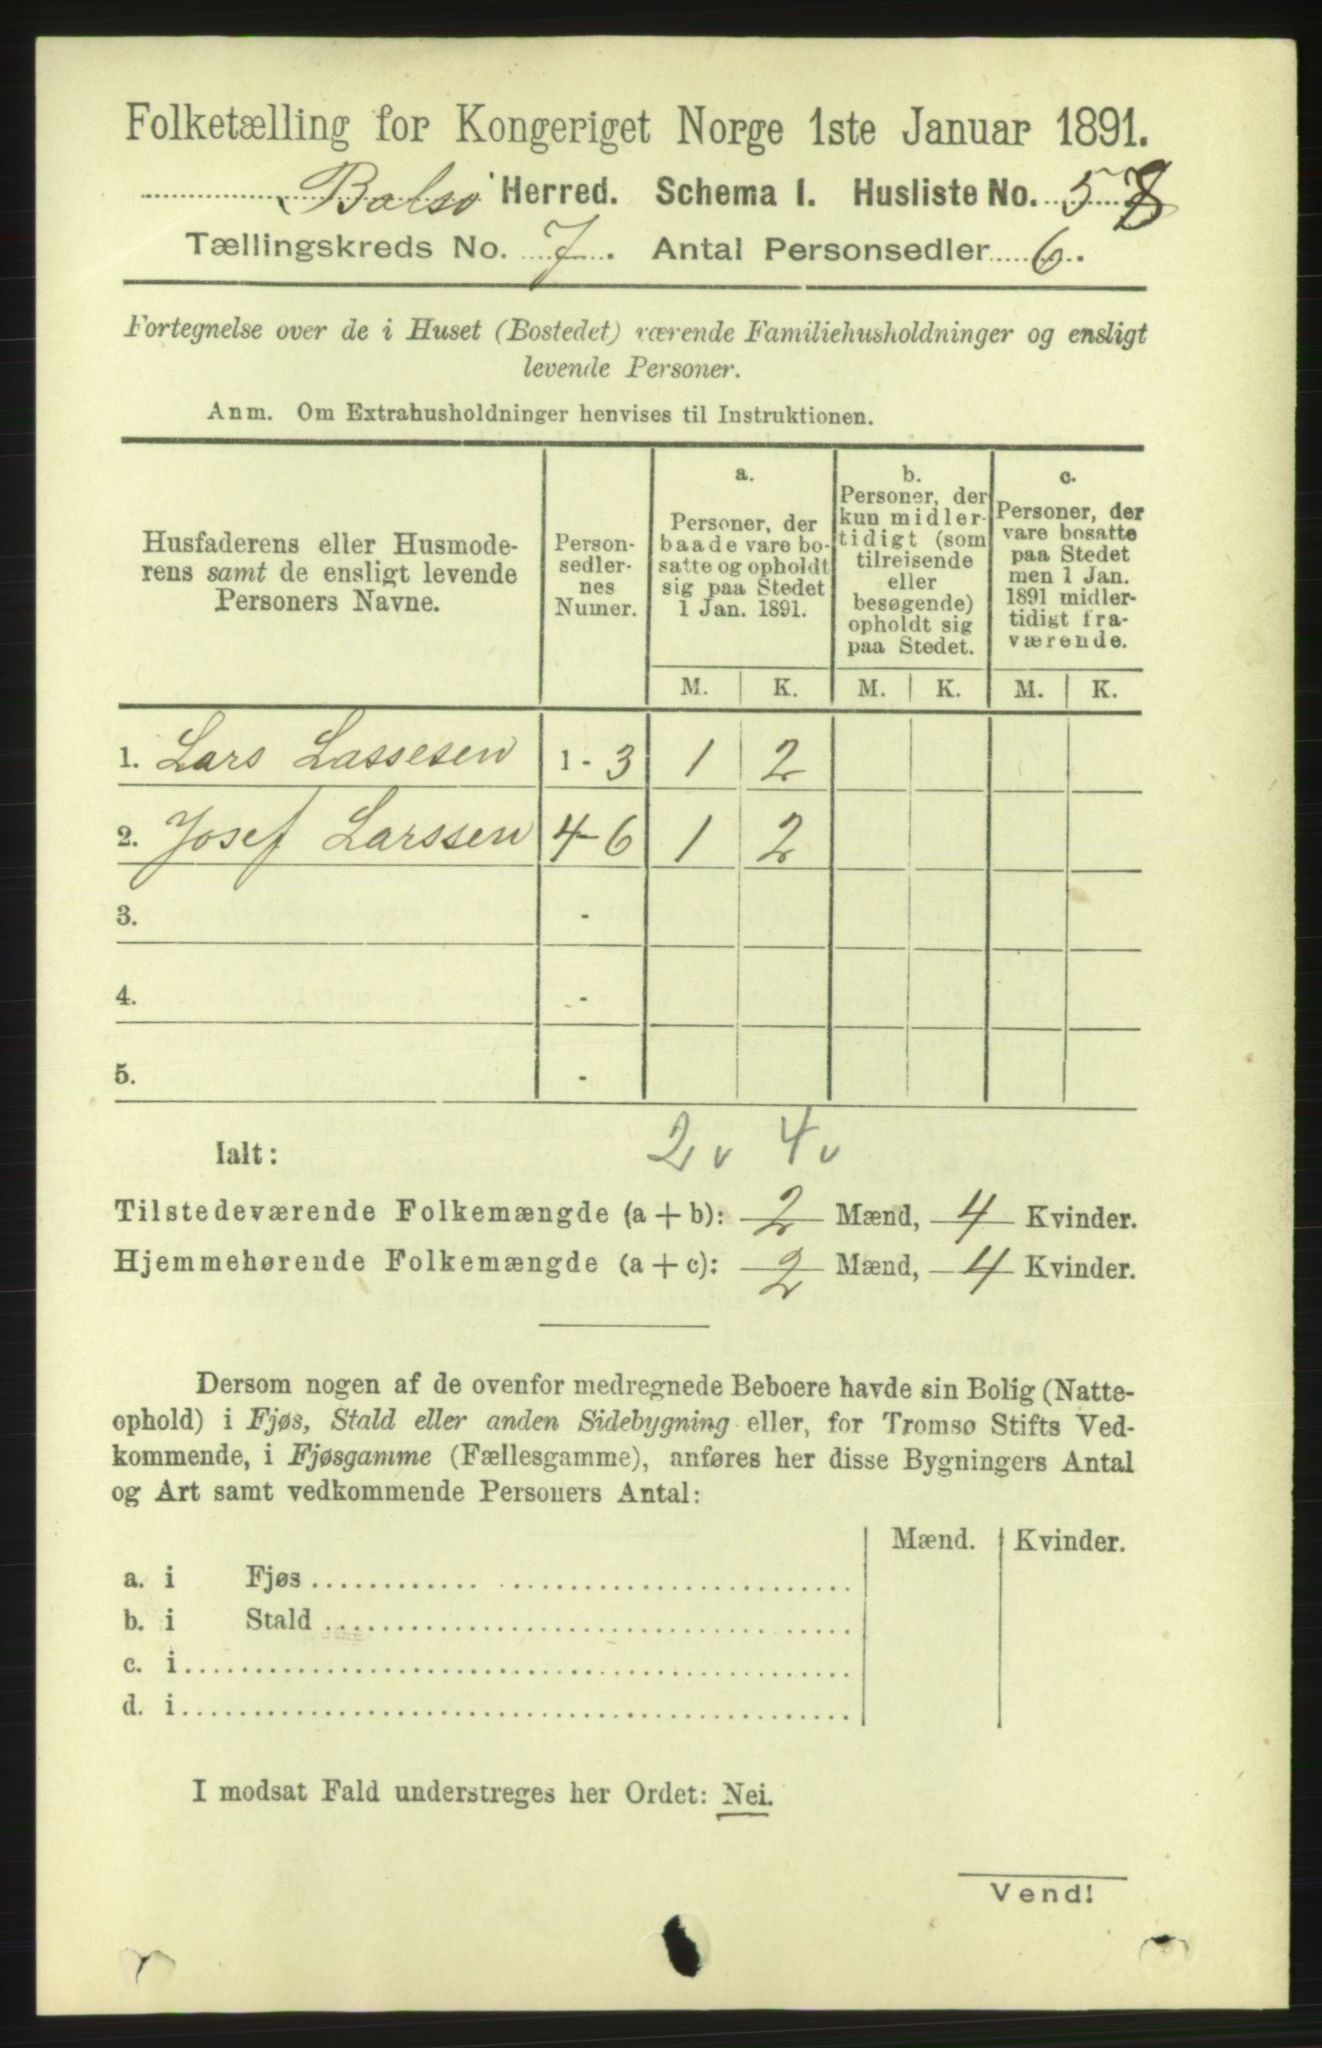 Folketælling for Kongeriget Norge 1ste Januar 1891.
Balsø Herred. Schema I. Husliste No. 58
Tællingskreds No. 7. Antal Personsedler 6.
Fortegnelse over de i Huset (Bostedet) værende Familiehusholdninger og ensligt
levende Personer.
Anm. Om Extrahusholdninger henvises til Instruktionen.
Husfaderens eller Husmode-
rens samt de ensligt levende
Personers Navne.
Person-
sedler-
nes
Numer.
a.
Personer, der
baade vare bo-
satte og opholdt
sig paa Stedet
1 Jan. 1891.
b.
Personer, der
kun midler-
tidigt (som
tilreisende
eller
besøgende)
opholdt sig
paa Stedet.
c.
Personer, der
vare bosatte
paa Stedet
men 1 Jan.
1891 midler-
tidigt fra-
værende.
M. K. M. K. M. K.
1. Lars Lassesen 1 - 3 1 2
2. Josef Larssen 4-6 1 2
3. -
4. -
5. -
Ialt: 2 v 4 v
Tilstedeværende Folkemængde (a + b): 2 Mænd, 4 Kvinder.
Hjemmehørende Folkemængde (a + c): 2 Mænd, 4 Kvinder.
Dersom nogen af de ovenfor medregnede Beboere havde sin Bolig (Natte-
ophold) i Fjøs, Stald eller anden Sidebygning eller, for Tromsø Stifts Ved-
kommende, i Fjøsgamme (Fællesgamme), anføres her disse Bygningers Antal
og Art samt vedkommende Personers Antal:
Mænd. Kvinder.
a. i Fjøs
b. i Stald
c. i
d. i
I modsat Fald understreges her Ordet: Nei.
Vend!